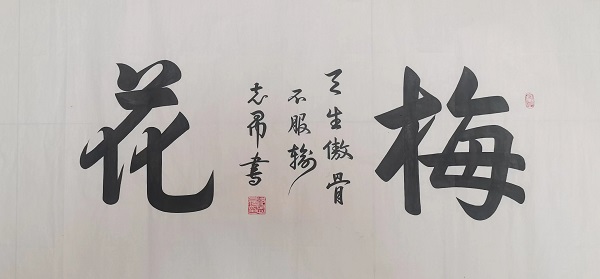 梅
天生傲骨
不服输
志昂書
花